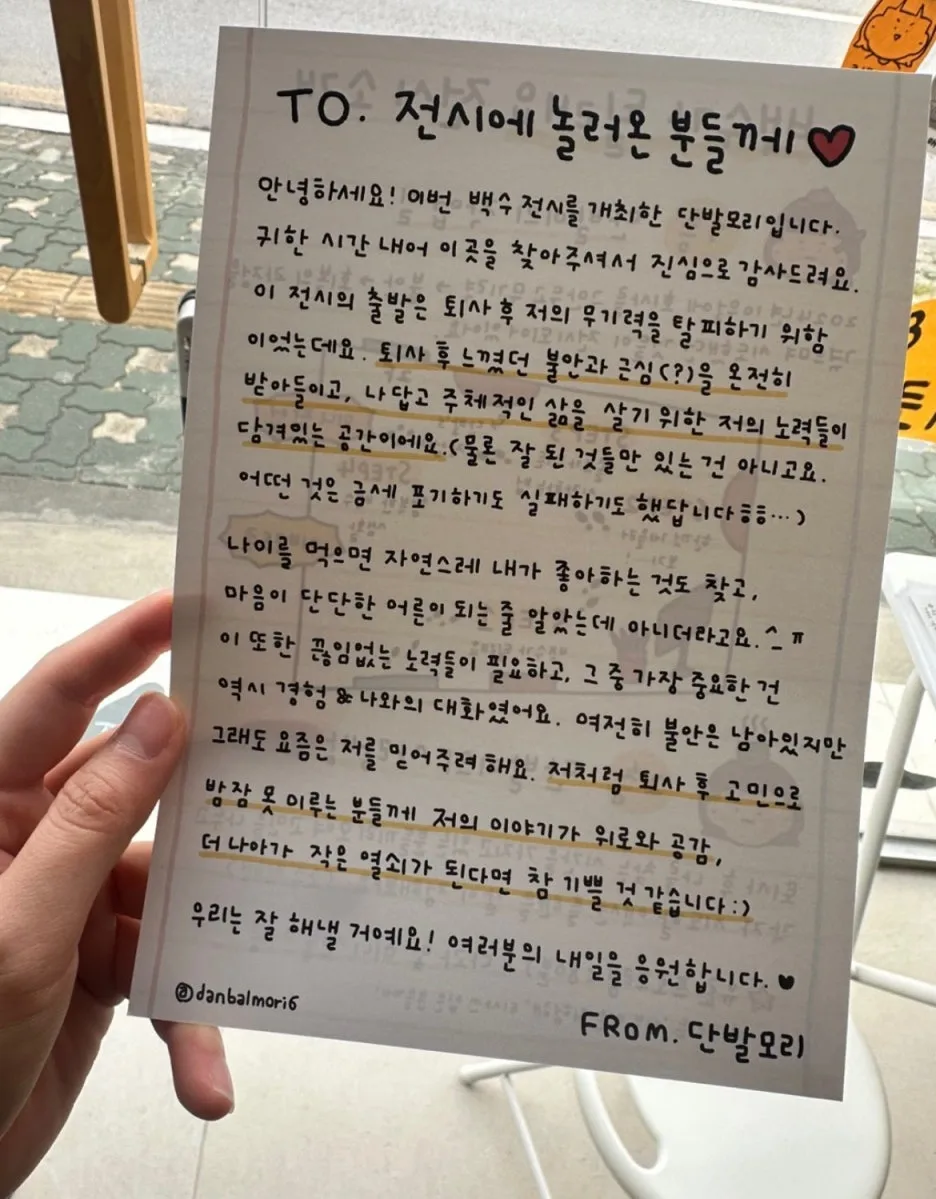 TO. 전시에 놀러온 분들께♥
안녕하세요! 이번 백수전시를 개최한 단발모리입니다.
귀한 시간 내어 이곳을 찾아주셔서 진심으로 감사드려요.
이 전시의 출발은 퇴사 후 저의 무기력을 탈피하기 위함
이었는데요. 퇴사 후 느꼈던 불안과 근심(?)을 온전히
받아들이고, 나답고 주체적인 삶을 살기 위한 저의 노력들이
담겨있는 공간이에요.(물론 잘 된 것들만 있는 건 아니고요.
어떤 것은 금세 포기하기도 실패하기도 했답니다ㅎㅎ...)
나이를 먹으면 자연스레 내가 좋아하는 것도 찾고,
마음이 단단한 어른이 되는 줄 알았는데 아니더라고요.^_ㅠ
이 또한 끊임없는 노력들이 필요하고, 그 중 가장 중요한 건
역시 경험 & 나와의 대화였어요. 여전히 불안은 남아있지만
그래도 요즘은 저를 믿어주려 해요. 저처럼 퇴사 후 고민으로
밤잠 못 이루는 분들께 저의 이야기가 위로와 공감,
더 나아가 작은 열쇠가 된다면 참 기쁠 것 같습니다:)
우리는 잘 해낼 거예요! 여러분의 내일을 응원합니다.♥
@danbalmori6
FROM. 단발모리